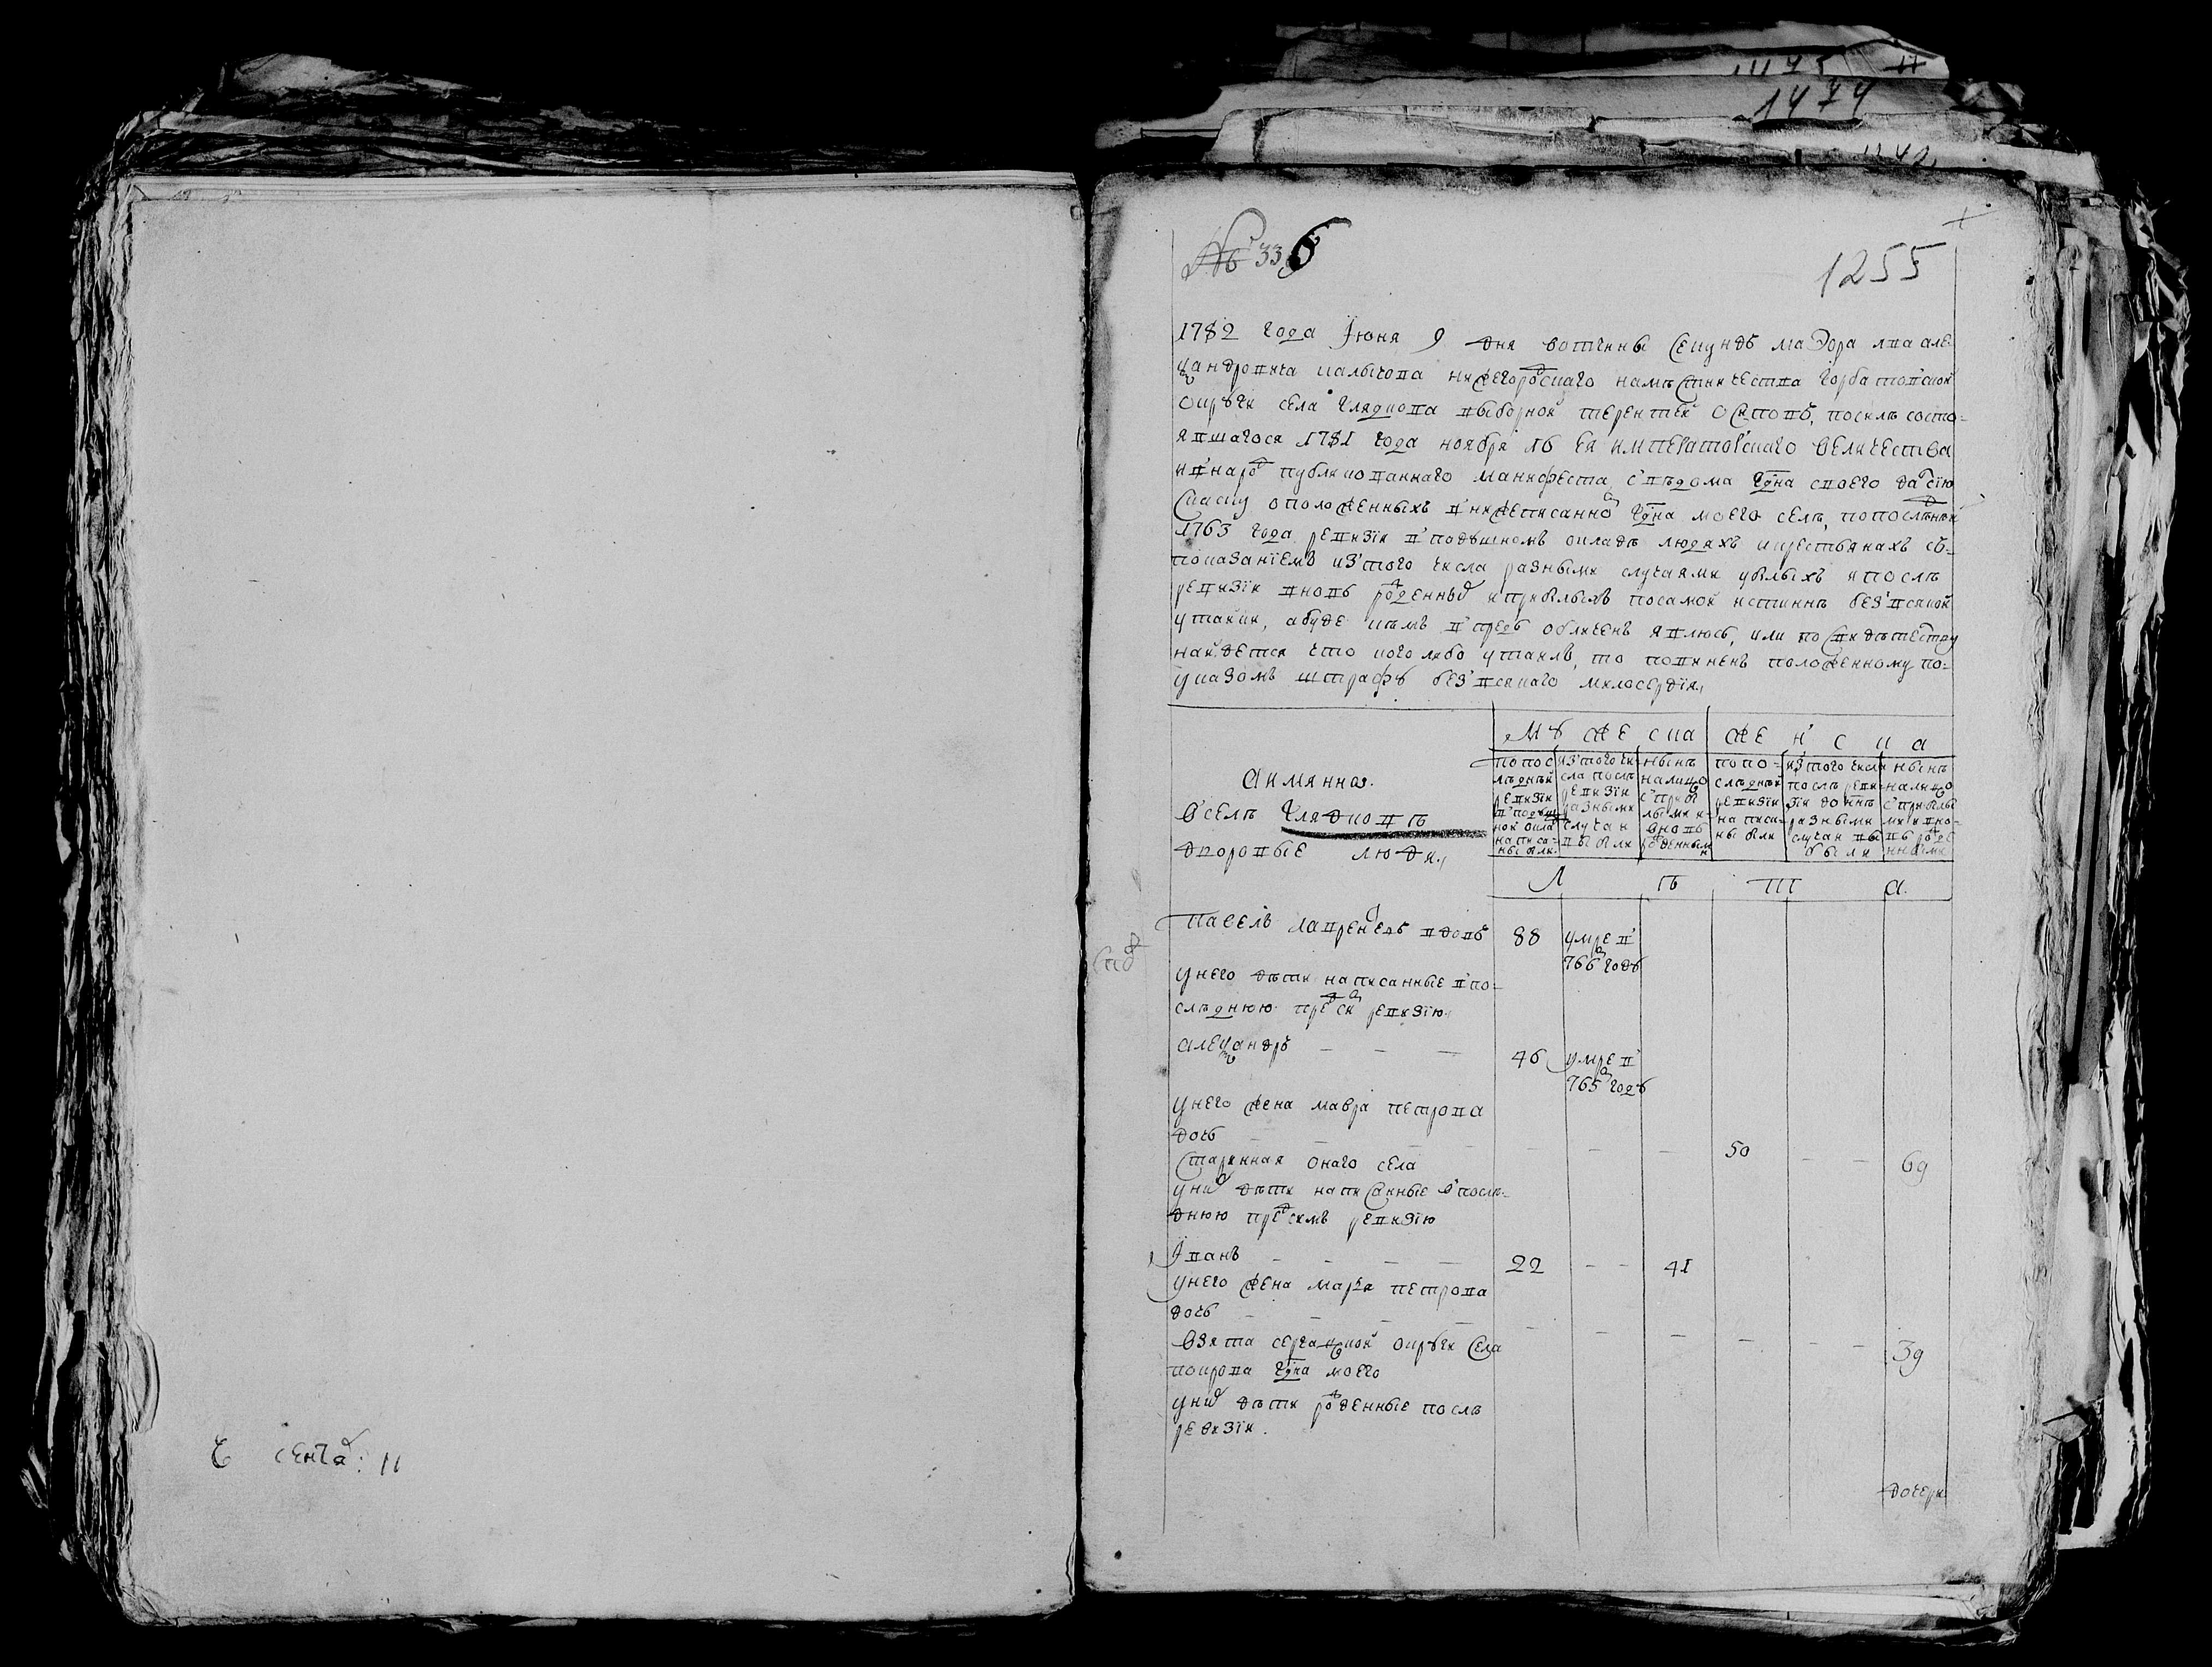 С сента: 11
1474
№ 336
1255
1782 года Июня 9 дня вотчины Секундъ маэора лва але
ксандровича нижегородскаго намѣстничества горбатовской
округи села Гляткова выборной терентей осиповъ, по силѣ состо-
явшагося 1781 года ноября 16 ея императорскаго величества
и в народ публикованнаго манифеста с вѣдома гдна своего дал сїю
скаску о положенныхъ в нижеписанном гдна моего селѣ, по последней
1763 года ревизїи в подушномъ окладѣ людяхъ и крестьянахъ съ
показанїемъ из того числа разными случаями убылыхъ и послѣ
ревизїи вновь рожденных и прибылыхъ по самой истиннѣ без всякой
утайки, а буде кѣмъ впредь обличенъ явлюсь, или по свидѣтелству
найдется что кого либо утаилъ, то повиненъ положенному по
указомъ штрафъ без всякаго милосердїя,
Мужеска
женска
А имянно.
В селѣ Глядковѣ
дворовые люди,
по последней ревизїи в подушной окладъ написаны были
из того числа послѣ ревизїи разными случаи выбыли
нынѣ на лицо с прибылыми и вновь рожденными
по последней ревизїи написаны были
из того числа послѣ ревизїи до ннѣ разными случаи выбыли
нынѣ на лицо с прибылыми и вновь рожденными
Лѣта.
Павелъ лаврентьевъ вдовъ 88 умре в
766м годъ
у него дѣти написанные в по-
слѣднюю пред сим ревизїю,
Александръ — — — 46 умре в
765м годъ
у него жена мавра петрова
дочь — — — — — — — 50 — — 69
Старинная онаго села
у них дѣти написанные в послѣ-
днюю пред симъ ревизїю
Иванъ — — — — 22 — — 41
у него жена марья петрова
дочь — — — — — — — — — — 39
взята округи села
покрова гдна моего
у них дѣти рожденные послѣ
ревизїи.
дочери